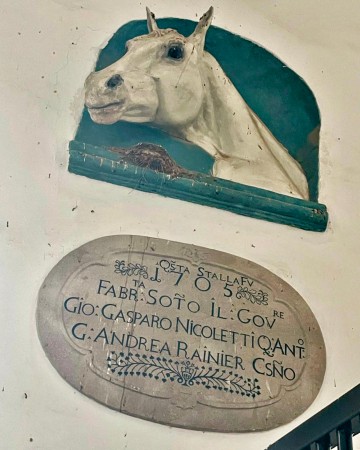 Q.STA STALLA FV
1705
FABR.TA SOTO IL GOV.RE
GIO: GASPARO NICOLETTI Q. ANT.O
G: ANDREA RAINIER CSÑO